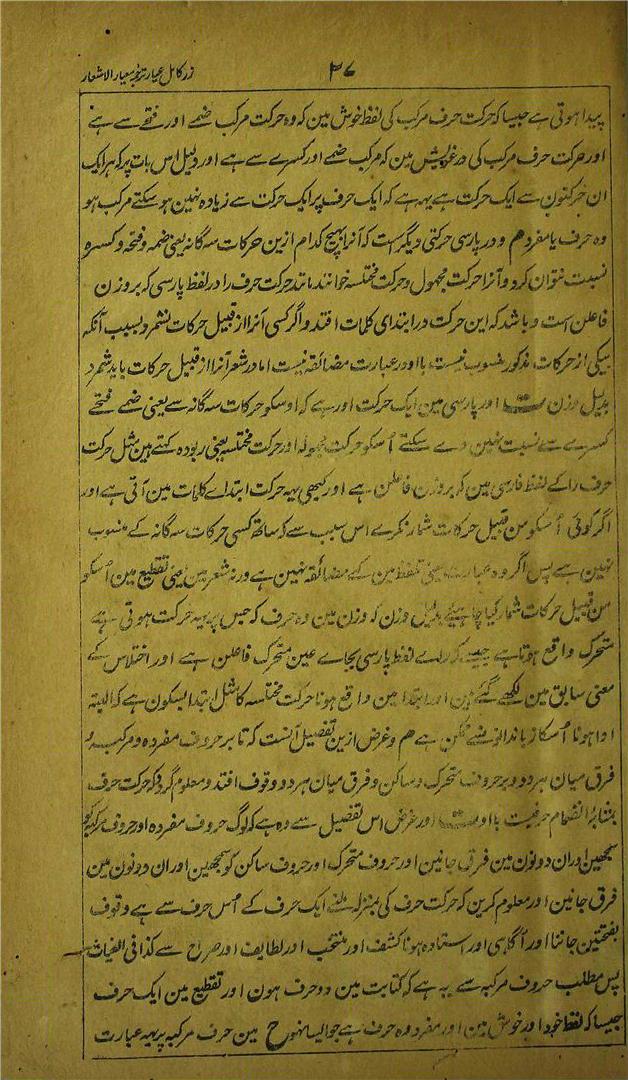 زر کامل عیار ترجمۂ معیار الاشعار
۳۷
پیدا ہوتی ہے جیسا کہ حرکت حرف مرکب کی لفظ خوش مین کہ وہ حرکت مرکب ضمے اور فتحے سے ہے
اور حرکت حرف مرکب کی مین کہ مرکب ضمے اور کسرے سے ہے اور دلیل اس بات پر کہ ہر ایک
ان حرکتون سے ایک حرکت ہے یہہ ہے کہ ایک حرف پر ایک حرکت سے زیادہ نہین ہو سکتے مرکب ہو
وہ حرف یا مفرد هم و در پارسی حرکتی دیگر است که آنرا بهیچ کدام ازین حرکات سه گانه یعنی ضمه و فتحه و کسره
نسبت نتوان کرد و آنرا حرکت مجهول و حرکت مختلسه خوانند مانند حرکت حرف را در لفظ پارسی که بر وزن
فاعلن است و باشد که این حرکت در ابتدای کلمات افتد و اگر کسی آنرا از قبیل حرکات نشمرد بسبب آنکه
بیکی از حرکات مذکور منسوب نیست با او در عبارت مضائقه نیست اما در شعر آنرا از قبیل حرکات باید شمرد
بدلیل وزن اور پارسی مین ایک حرکت اور ہے کہ اوسکو حرکات سہ گانہ سے یعنی ضمے فتحے
کسرے سے نسبت نہین دے سکتے اُسکو حرکت مجہولہ اور حرکت مختلسہ یعنی ربودہ کہتے ہین مثل حرکت
حرف را کے لفظ فارسی مین کہ بروزن فاعلن ہے اور کبھی یہہ حرکت ابتداے کلمات مین آتی ہے اور
اگر کوئی اُسکو من قبیل حرکات شمار نکرے اس سبب سے کہ ساتھ کسی حرکات سہ گانہ کے منسوب
نہین ہے پس اگر وہ عبارت یعنی تلفظ مین کے مضائقہ نہین ہے ورنہ شعر مین یعنی تقطیع مین اُسکو
من قبیل حرکات شمار کیا چاہیئے بدلیل وزن کہ وزن مین وہ حرف کہ جس پر یہہ حرکت ہوتی ہے
متحرک واقع ہوتا ہے جیسے کہ راے لفظ پارسی بجاے عین متحرک فاعلن ہے اور اختلاس کے
معنی سابق مین لکھے گئے ہین اور ابتدا مین واقع ہونا حرکت مختلسہ کا مثل ابتدا بسکون ہے کہ البتہ
ادا ہونا اُسکا زباندانون سے ممکن ہے هم و غرض ازین تفصیل آنست که تا بر حروف مفرده و مرکب و
فرق میان هر دو و بر حروف متحرک و ساکن و فرق میان هر دو وقوف افتد و معلوم گردد که حرکت حرف
بمثابۂ انضمام حرفیست با او اور غرض اس تفصیل سے وہ ہے کہ لوگ حروف مفردہ اور حروف مرکبہ کو
سمجھین اور ان دونون مین فرق جانین اور حروف متحرک اور حروف ساکن کو سمجھین اور ان دونون مین
فرق جانین اور معلوم کرین کہ حرکت حرف کی بمنزلہ ملنے ایک حرف کے اُس حرف سے ہے وقوف
بفتحتین جاننا اور آگاہی اور استادہ ہونا کشف اور منتخب اور لطایف اور صراح سے کذا فی الغیاث
پس مطلب حروف مرکبہ سے یہ ہے کہ کتابت مین دو حرف ہون اور تقطیع مین ایک حرف
جیسا کہ لفظ خود اور خوش مین اور مفرد وہ حرف ہے جو ایسا نہو ح مین حرف مرکبہ پر یہہ عبارت